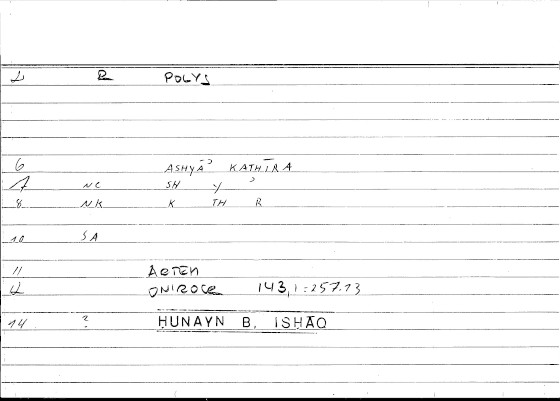 1 R POLYS
6 ASHYĀʾ KATHĪRA
7 NC SH Y ʾ
8 NK K TH R
10 SA
11 ARTEM
12 ONIROCR 143,1=257.13
14 ? HUNAYN B. ISHAQ